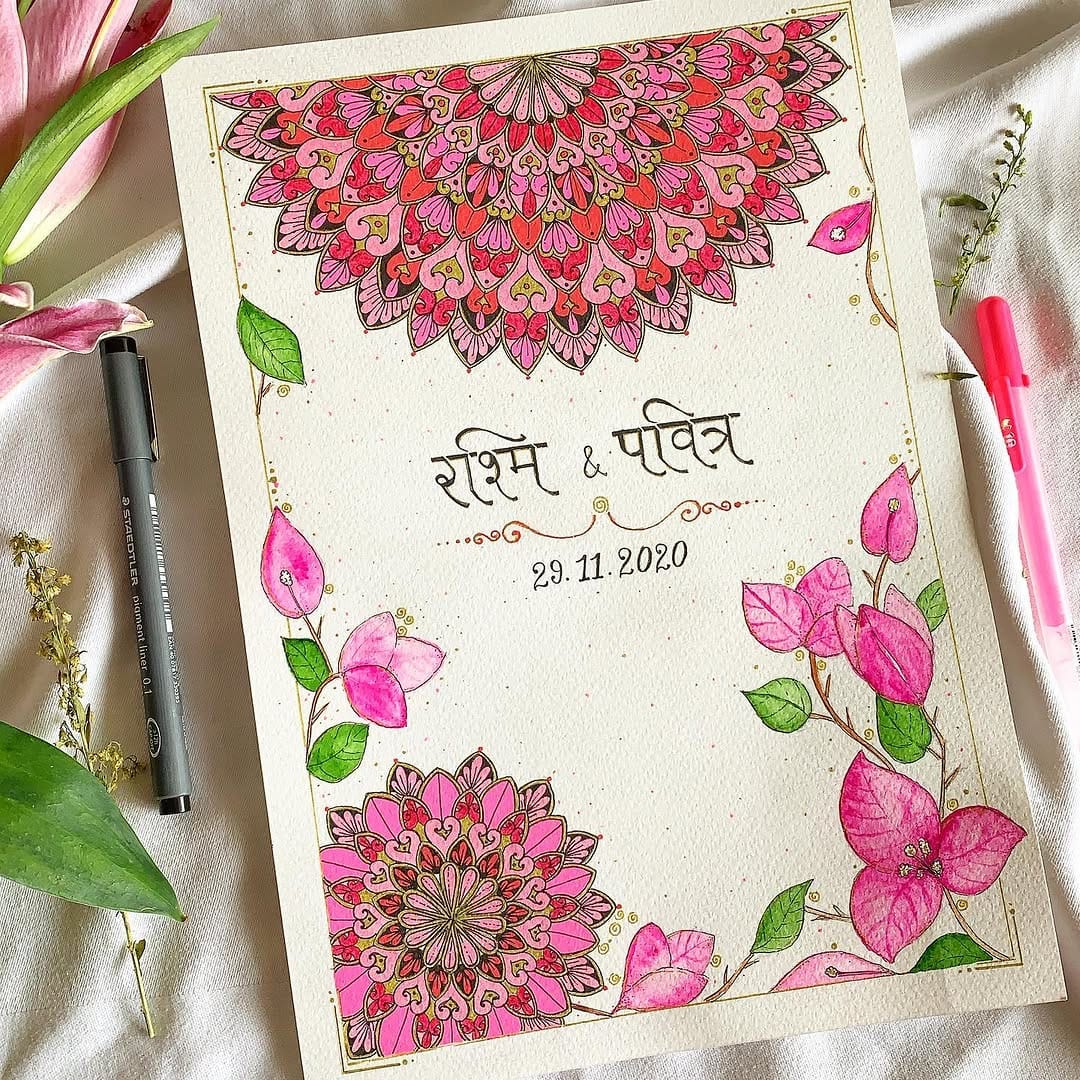 रश्मि & पवित्र
29.11.2020
STAEDTLER pigment liner 0.1